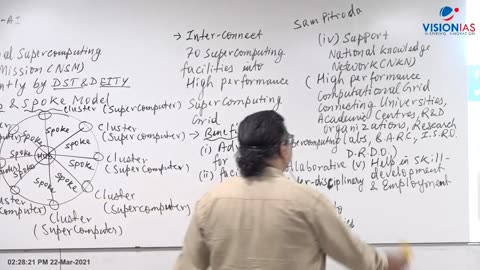 -AI
al Supercomputing
Mission (NSM)
ntly by DST & DEITY
& SPOKE Model
Cluster
(Supercomputer)
SPOKE
SPOKE
SPOKE
SPOKE
SPOKE
HUB
SPOKE
Cluster
(Supercomputer)
Cluster
(Supercomputer)
Cluster
(Supercomputer)
Cluster
computer)
Cluster
(Supercomputer)
→ Inter-connect
70 Supercomputing
facilities into
High performance
Supercomputing
Grid
→ Benef
(i) Ad
for
(ii) faci
llaborative
er-disciplinary
to
Sam Pitroda
(iv) Support
National knowledge
Network (NKN)
(High performance
Computational Grid
Connecting Universities,
Academic Centres, R&D
organizations, Research
Labs, B.A.R.C, I.S.R.O.
D.R.D.O.)
(v) Help in Skill-
development
& Employment
VISIONIAS
INSPIRING INNOVATION
02:28:21 PM 22-Mar-2021